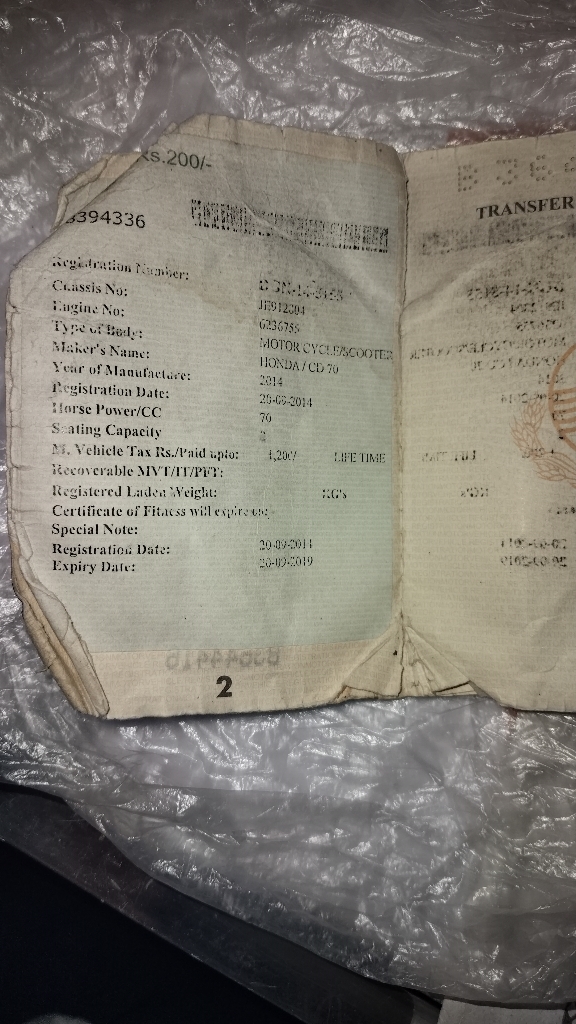 Rs.200/-
394336
Registration Number:
Chassis No: JE912204
Engine No: 6236755
Type of Body: MOTOR CYCLE/SCOOTER
Maker's Name: HONDA / CD 70
Year of Manufacture: 2014
Registration Date: 20-09-2014
Horse Power/CC 70
Seating Capacity 2
M. Vehicle Tax Rs./Paid upto: 1,200/ LIFE TIME
Recoverable MVT/IT/PFT:
Registered Laden Weight: KG's
Certificate of Fitness will expire on:
Special Note:
Registration Date: 20-09-2014
Expiry Date: 20-09-2019
2
TRANSFER